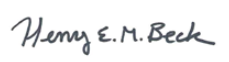 Henry E. M. Beck